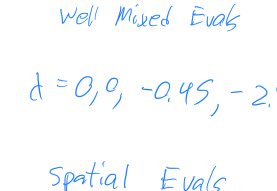 Well Mixed Evals
λ = 0, 0, -0.45, -2.
Spatial Evals